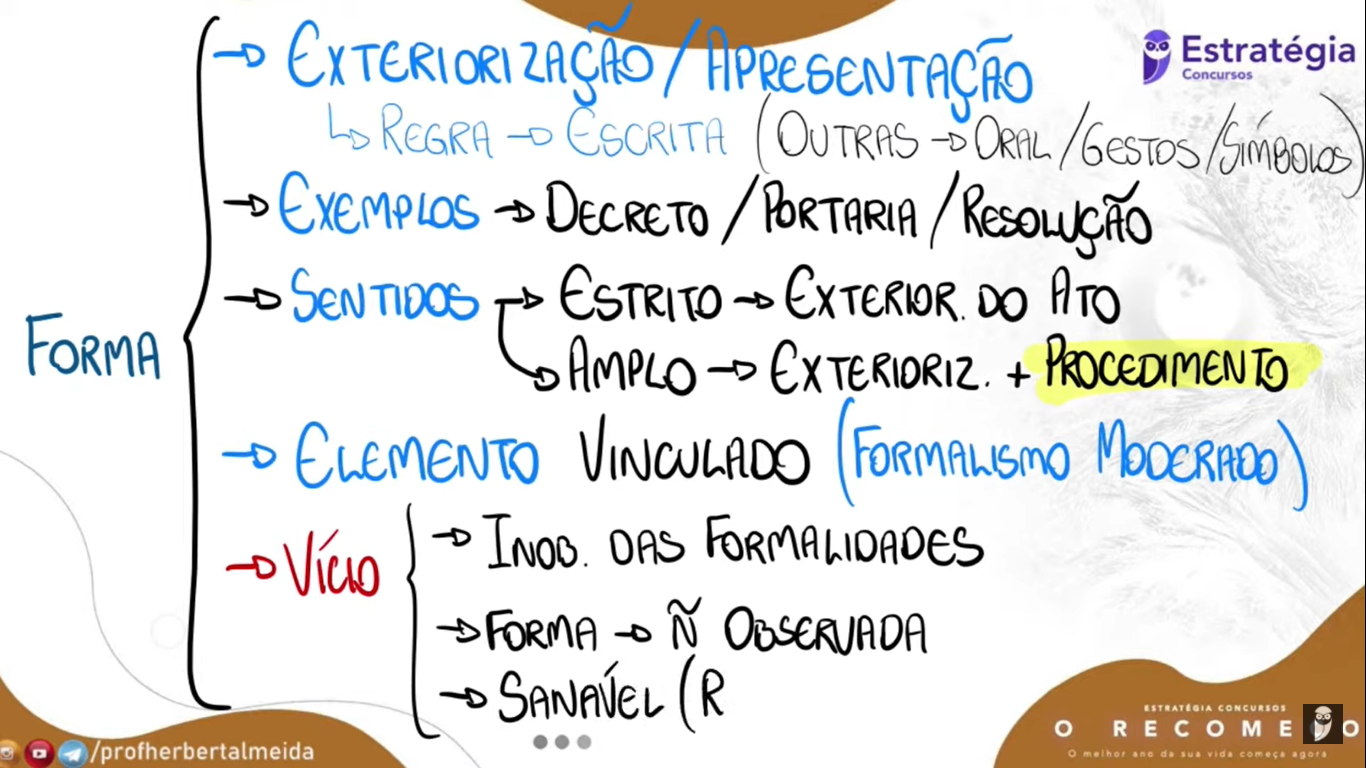 Estratégia
Concursos
→ EXTERIORIZAÇÃO / APRESENTAÇÃO
↳ REGRA → ESCRITA (OUTRAS → ORAL / GESTOS / SÍMBOLOS)
→ EXEMPLOS → DECRETO / PORTARIA / RESOLUÇÃO
→ SENTIDOS → ESTRITO → EXTERIOR. DO ATO
→ AMPLO → EXTERIORIZ. + PROCEDIMENTO
FORMA
→ ELEMENTO VINCULADO (FORMALISMO MODERADO)
→ VÍCIO
→ INOB. DAS FORMALIDADES
→ FORMA → Ñ OBSERVADA
→ SANÁVEL (R
/profherbertalmeida
ESTRATÉGIA CONCURSOS
O RECOMEÇO
O melhor ano da sua vida começa agora